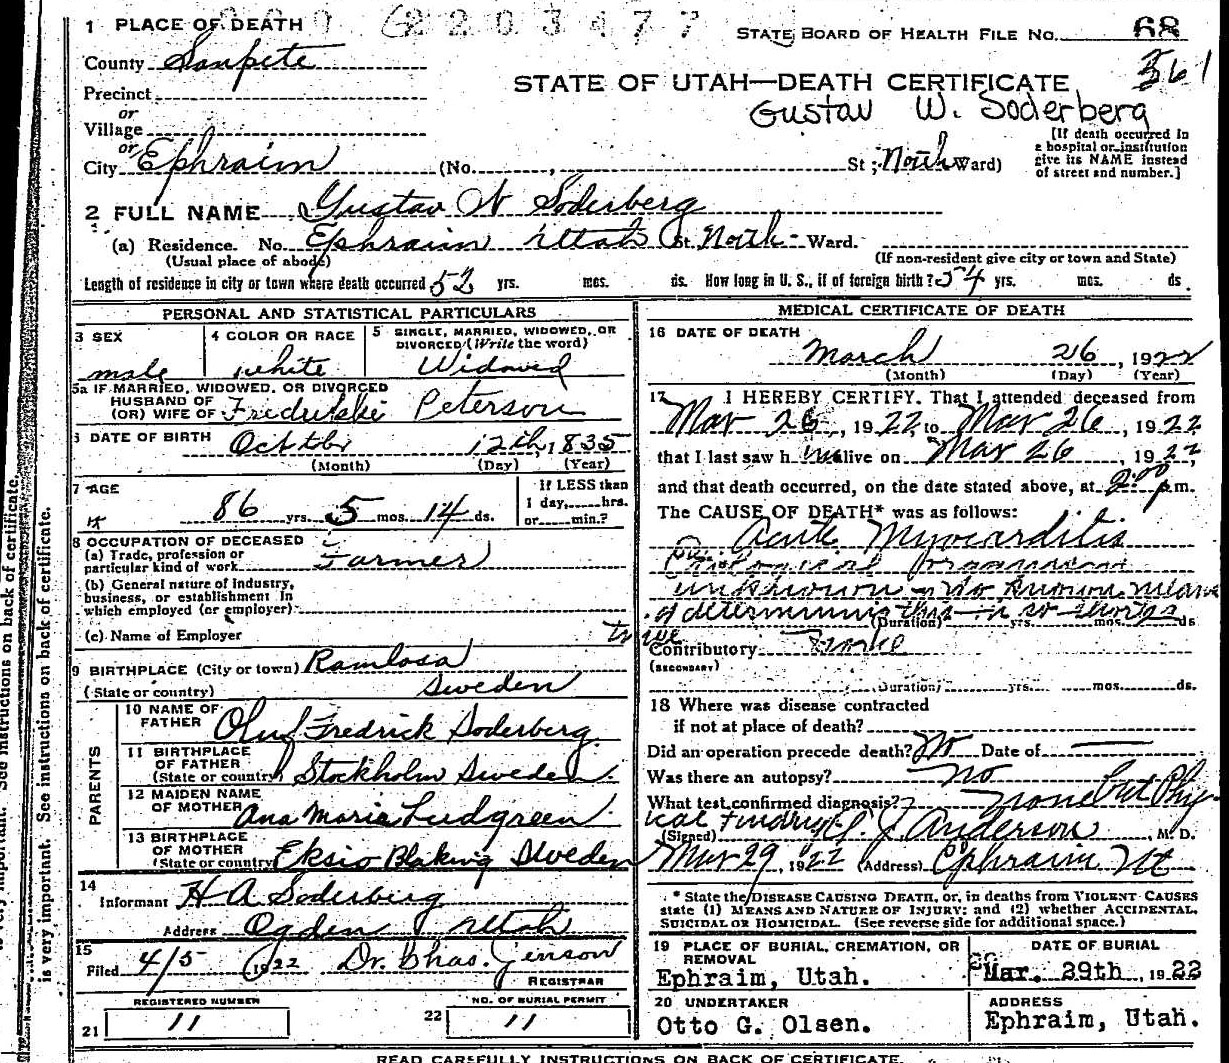 1 PLACE OF DEATH
2203477
STATE BOARD OF HEALTH FILE NO. 68
361
County Sanpete
STATE OF UTAH—DEATH CERTIFICATE
Gustav W. Soderberg
Precinct
or
Village
or
City Ephraim (No. , St.; North Ward)
[If death occurred in
a hospital or institution
give its NAME instead
of street and number.]
2 FULL NAME Gustav W Soderberg
(a) Residence. No. Ephraim Utah St. North Ward.
(Usual place of abode) (If non-resident give city or town and State)
Length of residence in city or town where death occurred 52 yrs. mos. ds. How long in U. S., if of foreign birth? 54 yrs. mos. ds.
PERSONAL AND STATISTICAL PARTICULARS
3 SEX
male
4 COLOR OR RACE
white
5 SINGLE, MARRIED, WIDOWED, OR
DIVORCED (Write the word)
Widowed
5a IF MARRIED, WIDOWED, OR DIVORCED
HUSBAND OF
(OR) WIFE OF Fredrikke Peterson
6 DATE OF BIRTH October 12th, 1835
(Month) (Day) (Year)
7 AGE
86 yrs. 5 mos. 14 ds.
If LESS than
1 day, hrs.
or min.?
8 OCCUPATION OF DECEASED
(a) Trade, profession or
particular kind of work Farmer
(b) General nature of Industry,
business, or establishment in
which employed (or employer)
(c) Name of Employer
9 BIRTHPLACE (City or town) Ramlosa
(State or country) Sweden
PARENTS
10 NAME OF
FATHER Oluf Fredrick Soderberg
11 BIRTHPLACE
OF FATHER
(State or country) Stockholm Sweden.
12 MAIDEN NAME
OF MOTHER Ana Maria Ludgreen
13 BIRTHPLACE
OF MOTHER
(State or country) Eksio Sweden
14
Informant H A Soderberg
Address Ogden Utah
15
Filed 4/5 1922 Dr. Chas. Jenson
REGISTRAR
REGISTERED NUMBER
21 11
NO. OF BURIAL PERMIT
22 11
MEDICAL CERTIFICATE OF DEATH
16 DATE OF DEATH
March 26, 1922
(Month) (Day) (Year)
17 I HEREBY CERTIFY, That I attended deceased from
Mar 26, 1922, to Mar 26, 1922
that I last saw him alive on Mar 26, 1922
and that death occurred, on the date stated above, at 2:00 p.m.
The CAUSE OF DEATH* was as follows:
Acute Myocarditis
unknown - No known means
of determining this in so short a
(Duration) yrs. mos. ds.
time
Contributory
(SECONDARY)
(Duration) yrs. mos. ds.
18 Where was disease contracted
if not at place of death?
Did an operation precede death? No Date of —
Was there an autopsy? No
What test confirmed diagnosis? None but Phy-
ical Findings
(Signed) J. Anderson, M. D.
Mar 29, 1922 (Address) Ephraim Ut
* State the DISEASE CAUSING DEATH, or, in deaths from VIOLENT CAUSES
state (1) MEANS AND NATURE OF INJURY; and (2) whether ACCIDENTAL,
SUICIDAL OR HOMICIDAL. (See reverse side for additional space.)
19 PLACE OF BURIAL, CREMATION, OR
REMOVAL
Ephraim, Utah.
DATE OF BURIAL
Mar. 29th, 1922
20 UNDERTAKER
Otto G. Olsen.
ADDRESS
Ephraim, Utah.
READ CAREFULLY INSTRUCTIONS ON BACK OF CERTIFICATE.
is very important. See instructions on back of certificate.
See instructions on back of certificate.